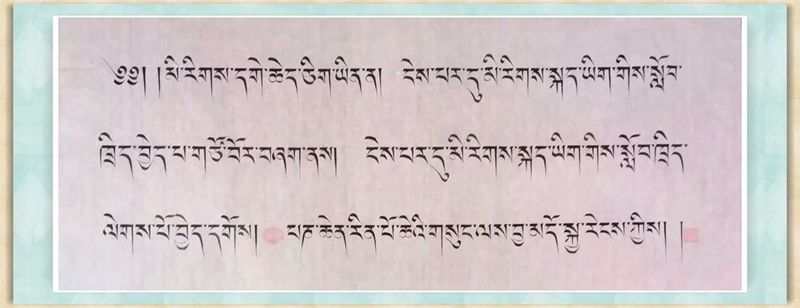 ༄༅། །མི་རིགས་དགེ་ཆེད་ཅིག་ཡིན་ན། ངེས་པར་དུ་མི་རིགས་སྐད་ཡིག་གིས་སློབ་
ཁྲིད་བྱེད་པ་གཙོ་བོར་བཞག་ནས། ངེས་པར་དུ་མི་རིགས་སྐད་ཡིག་གིས་སློབ་ཁྲིད་
ལེགས་པོ་བྱེད་དགོས། པཎ་ཆེན་རིན་པོ་ཆེའི་གསུང་ལས་བྱ་མདོ་སྐྱ་རེངས་ཀྱིས། །